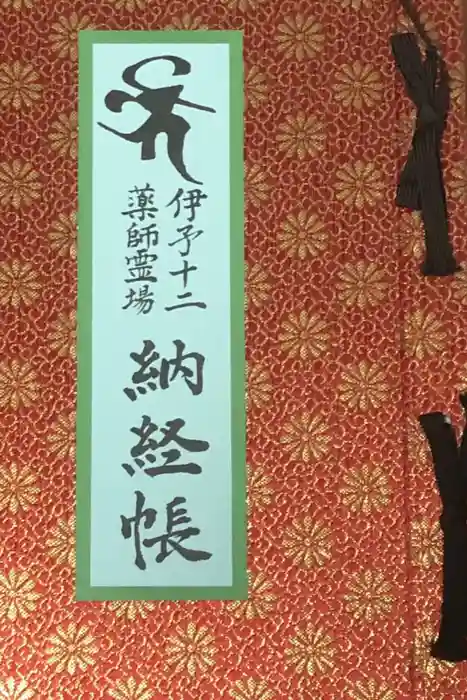 伊予十二
薬師霊場
納経帳